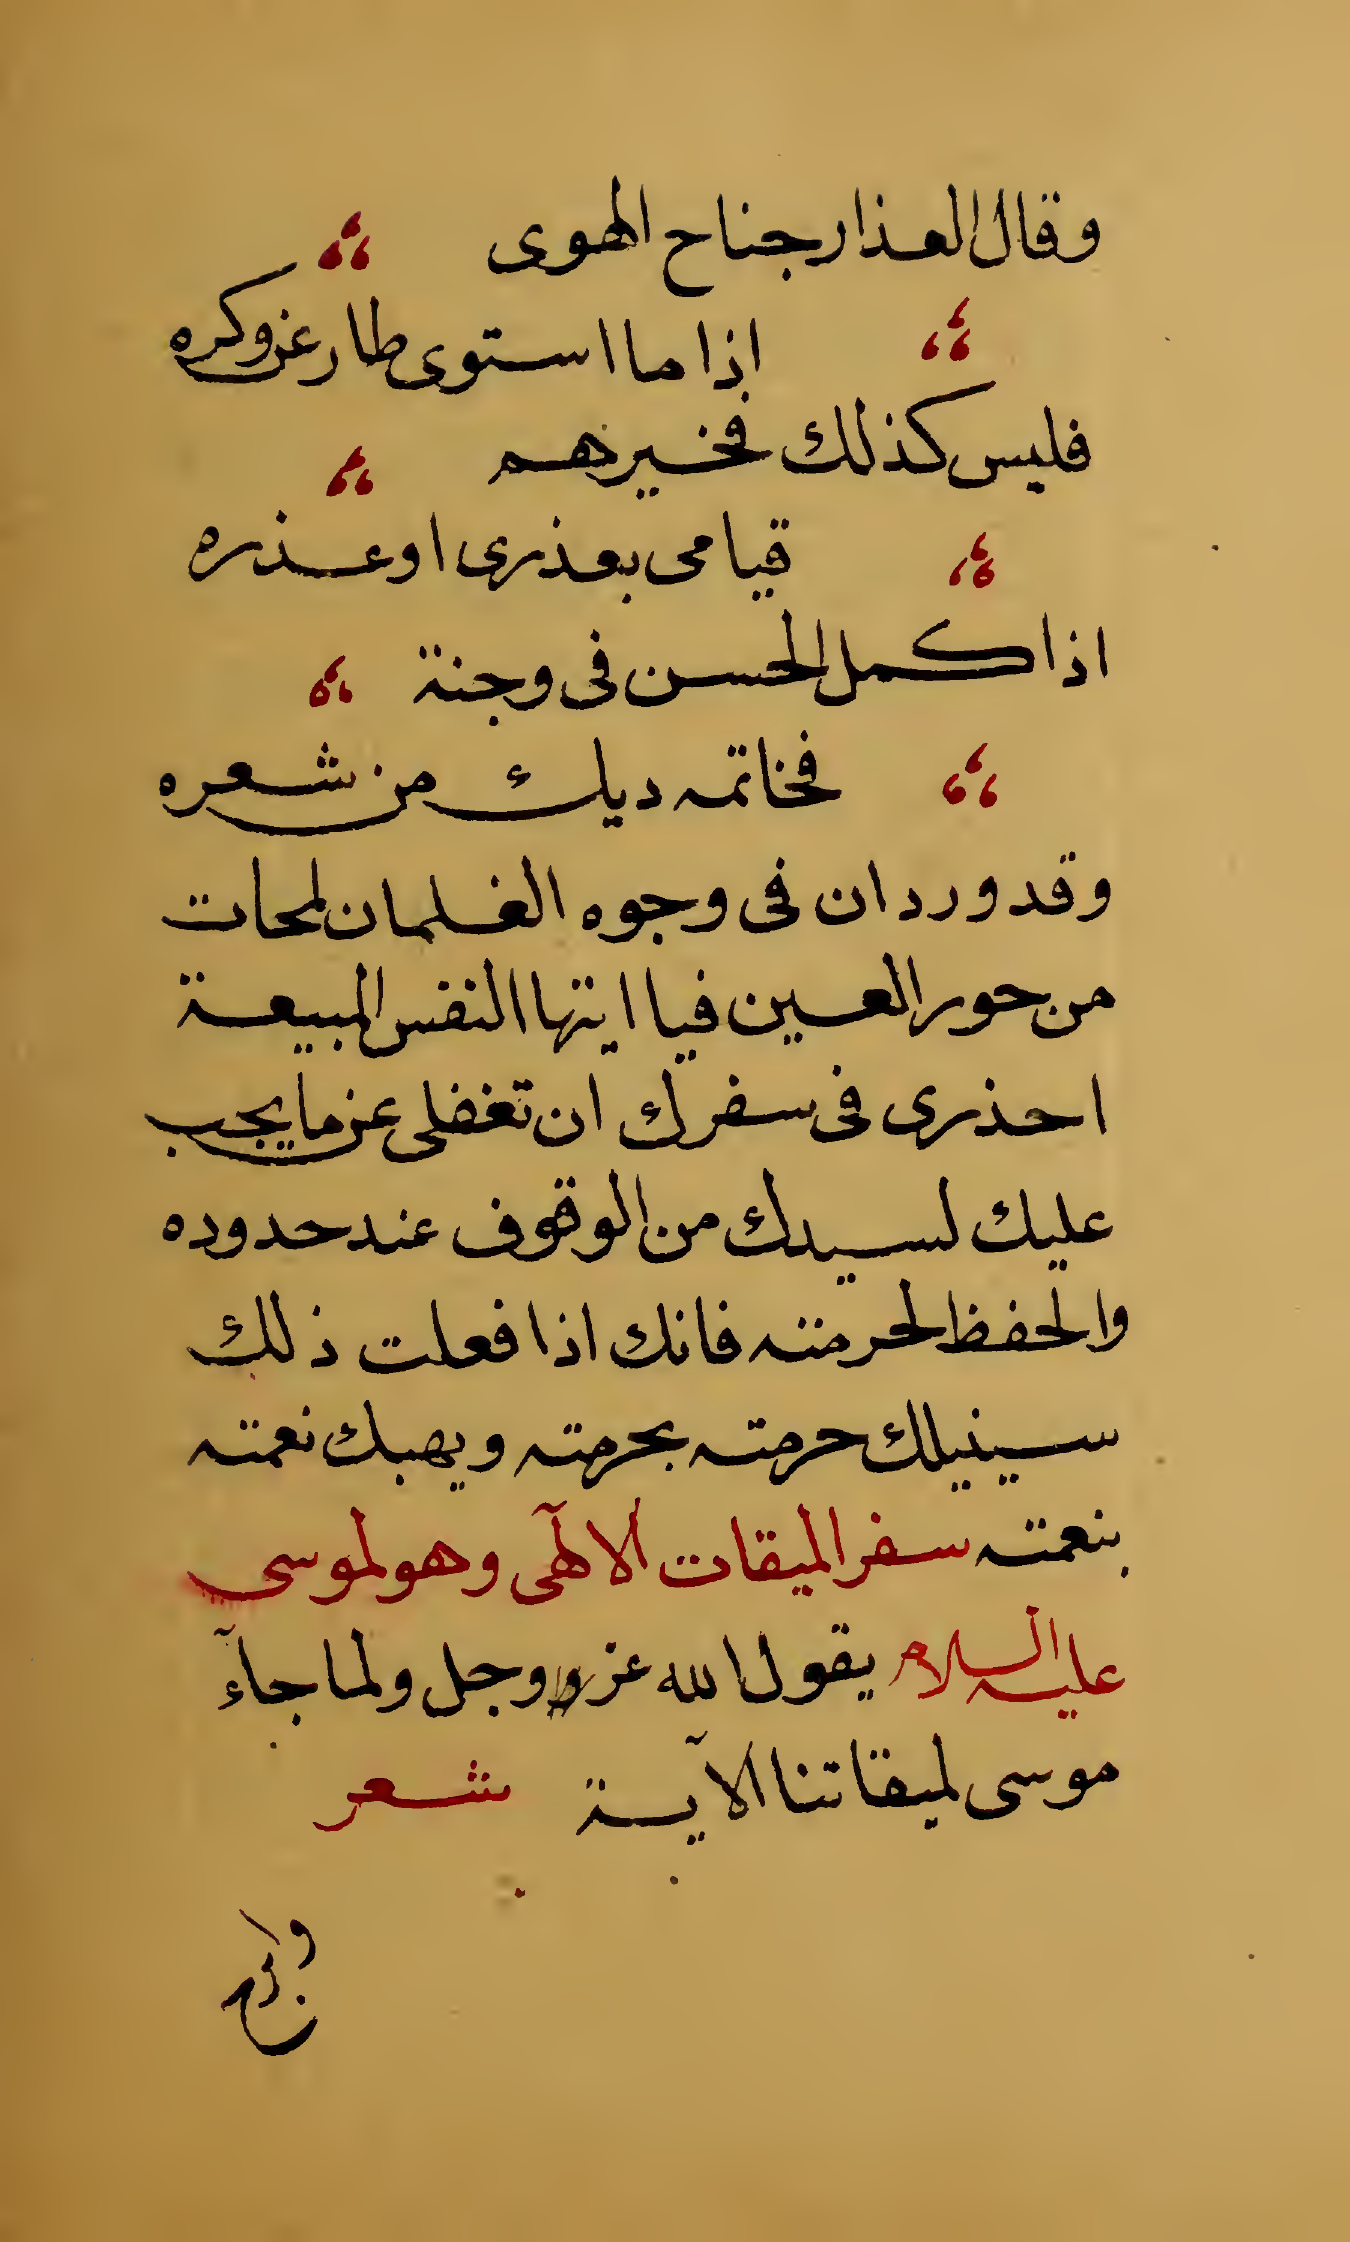 وقال العذار جناح الهوى
اذا ما استوى طار عن وكره
فليس كذلك فخيرهم
قيامى بعذرى او عذره
اذا كمل الحسن فى وجنة
فخاتمه ديك من شعره
وقد ورد ان فى وجوه الغلمان لمحات
من حور العين فيا ايتها النفس المبيعة
احذرى فى سفرك ان تغفلى عن ما يجب
عليك لسيدك من الوقوف عند حدوده
والحفظ لحرمته فانك اذا فعلت ذلك
سينيلك حرمته بحرمته ويهبك نعمته
بنعمته سفر الميقات الالآهى وهو لموسى
عليه السلام يقول الله عز وجل ولما جآء
موسى لميقاتنا الآية شعر